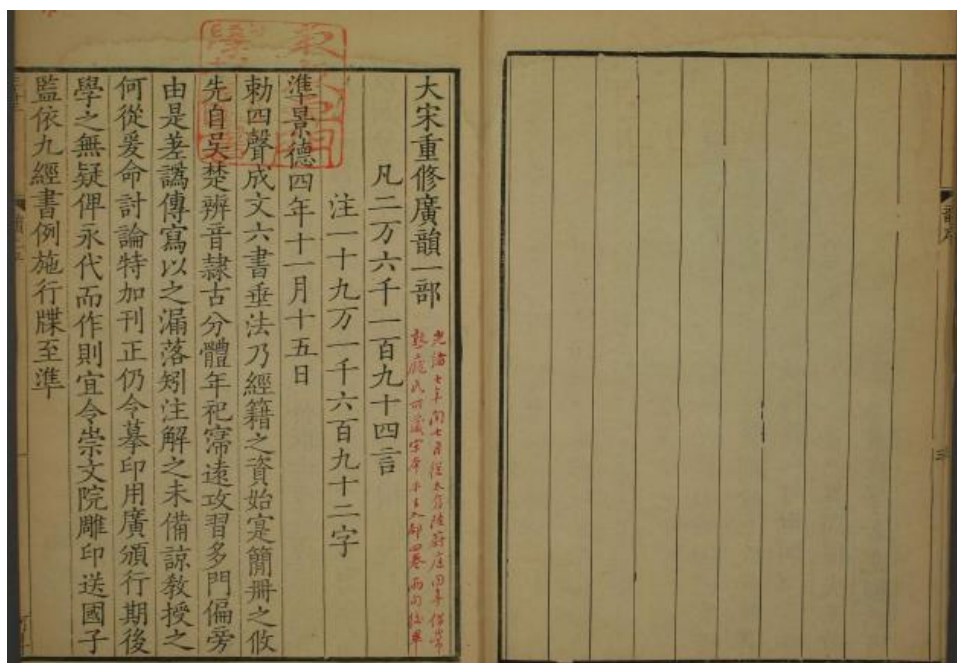 大宋重修廣韻一部
光緒七年閏七月從太倉陸蔚庭同年借常
熟龐氏所藏宋本
凡二万六千一百九十四言
注一十九万一千六百九十二字
準景德四年十一月十五日
勅四聲成文六書垂法乃經籍之資始寔簡冊之攸
先自吳楚辨音隷古分體年祀寖遠攻習多門偏旁
由是差譌傳寫以之漏落矧注解之未備諒教授之
何從爰命討論特加刊正仍令摹印用廣頒行期後
學之無疑俾永代而作則宜令崇文院雕印送國子
監依九經書例施行牒至準